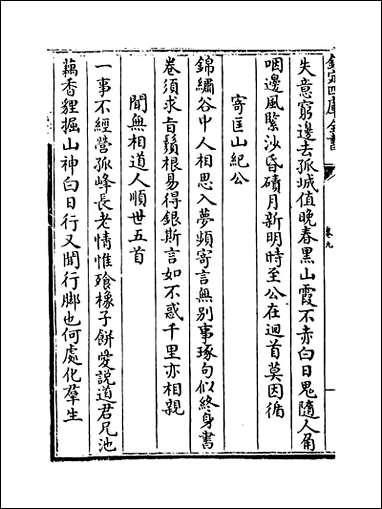 欽定四庫全書
卷九
失意窮邊去孤城值晚春黑山霞不赤白日鬼隨人角
咽邊風緊沙昏磧月新明時至公在迴首莫因循
寄匡山紀公
錦繡谷中人相思入夢頻寄言無別事琢句似終身書
卷須求旨鬚根易得銀斯言如不惑千里亦相親
聞無相道人順世五首
一事不經營孤峰長老情惟飱橡子餅愛說道君兄池
藕香貍掘山神白日行又聞行脚也何處化羣生